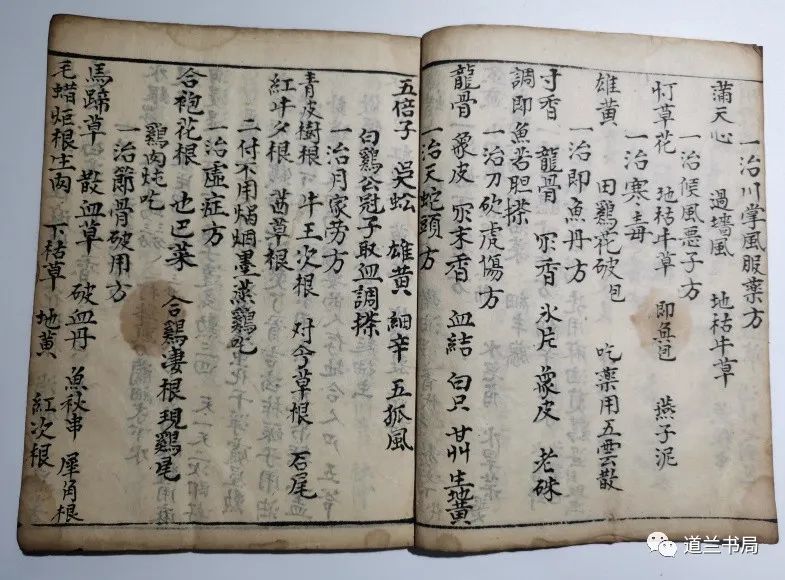 一治川掌風服藥方
蒲天心 過墻風 地枯牛草
一治候風悪子方
灯草花 地枯牛草 即魚包 燕子泥
一治寒毒
雄黄 田鷄花破包 吃藥用五雲散
一治即魚丹方
寸香 龍骨 宗香 氷片 象皮 老硃
調即魚若胆搽
一治刀砍虎傷方
龍骨 象皮 宗末香 血結 白只 甘艸 生地黄
一治天蛇頭方
五倍子 吴蚣 雄黄 細辛 五狐風
白鷄公冠子取血調搽
一治月家劳方
青皮樹根 牛王次根 对今草根 石尾
紅牛夕根 茜草根
二付不用烟墨蒸鷄吃
一治虚症方
合袍花根 也巴菜 合鷄凄根現鷄尾
鷄肉炖吃
一治節骨破用方
馬蹄草 散血草 破血丹 魚秋串 犀角根
毛蜡炬根生两 下枯草 地黄 紅次根
道兰书局